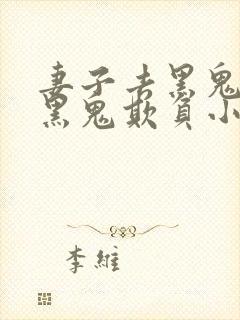 妻子去黑鬼
黑鬼欺負小
李維